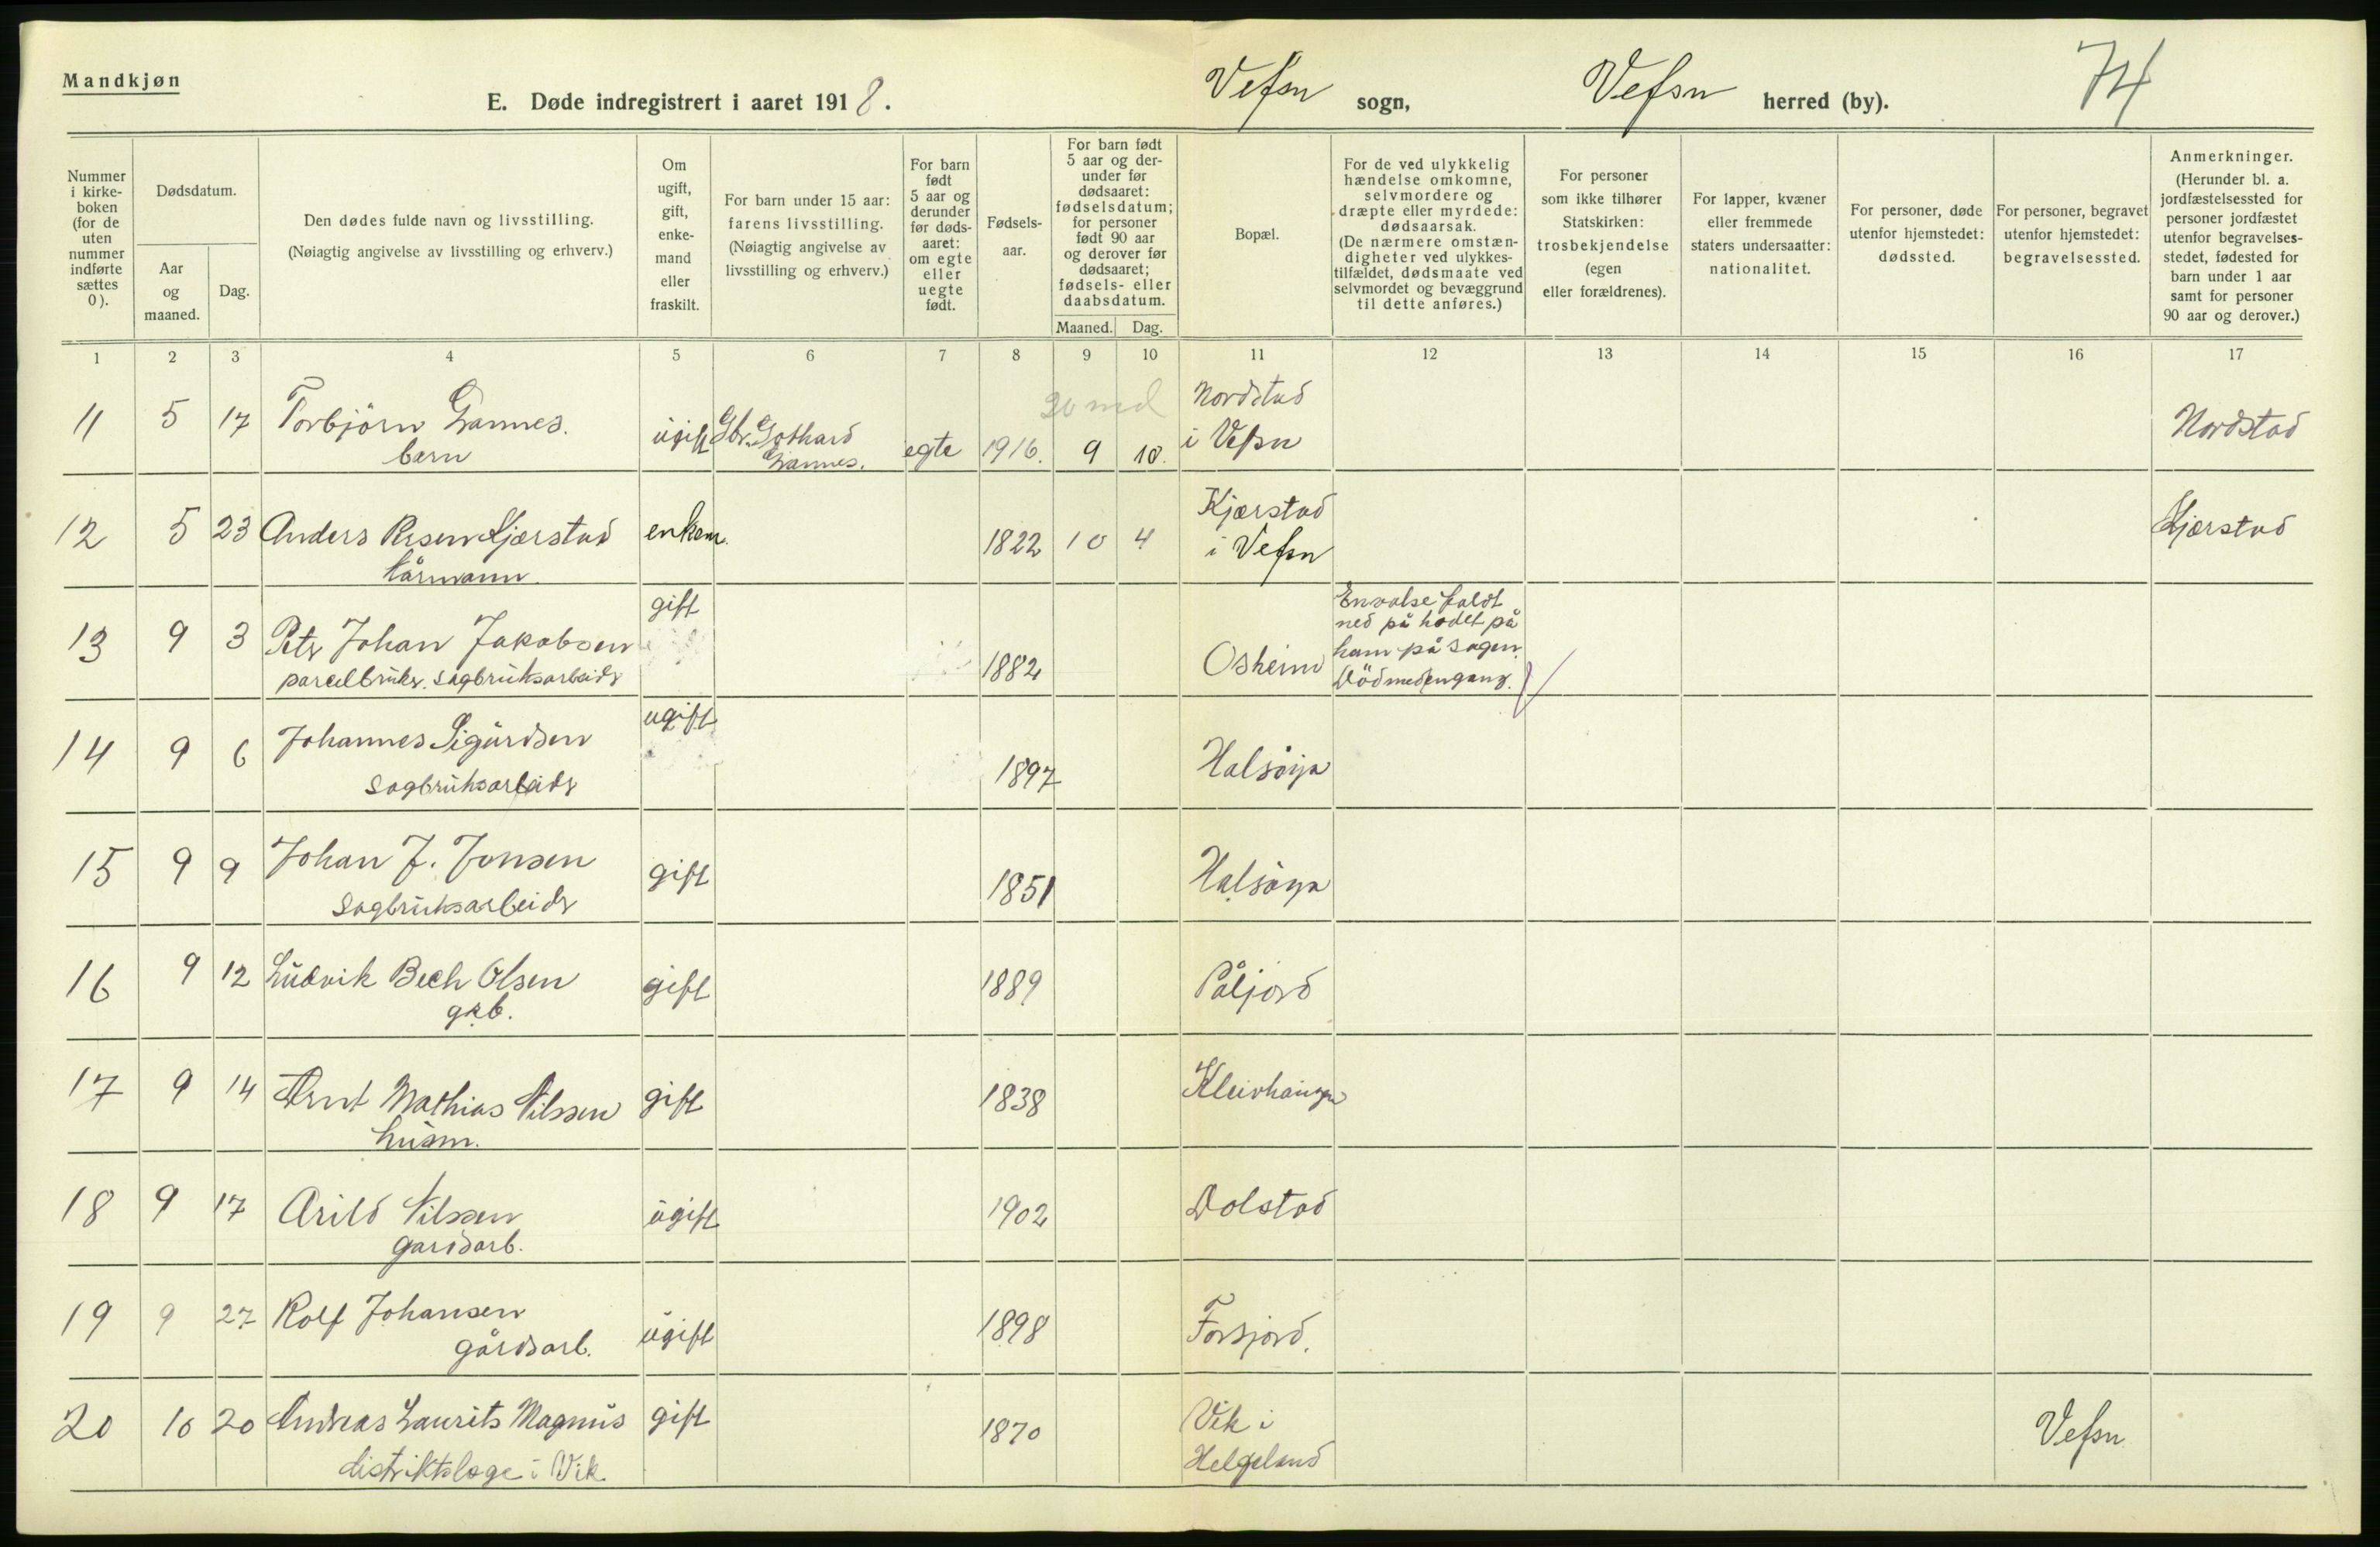 Mandkjøn
E. Døde indregistrert i aaret 1918.
Vefsn sogn, Vefsn herred (by). 74
Nummer i kirke-boken (for de uten nummer indførte sættes 0).
Dødsdatum.
Aar og maaned.
Dag.
Den dødes fulde navn og livsstilling.
(Nøiagtig angivelse av livsstilling og erhverv.)
Om ugift, gift, enke-mand eller fraskilt.
For barn under 15 aar: farens livsstilling. (Nøiagtig angivelse av livsstilling og erhverv.)
For barn født 5 aar og derunder før døds-aaret: om egte eller uegte født.
Fødsels-aar.
For barn født 5 aar og der-under før dødsaaret: fødselsdatum; for personer født 90 aar og derover før dødsaaret; fødsels- eller daabsdatum.
Maaned. Dag.
Bopæl.
For de ved ulykkelig hændelse omkomne, selvmordere og dræpte eller myrdede: dødsaarsak. (De nærmere omstæn-digheter ved ulykkes-tilfældet, dødsmaate ved selvmordet og bevæggrund til dette anføres.)
For personer som ikke tilhører Statskirken: trosbekjendelse (egen eller forældrenes).
For lapper, kvæner eller fremmede staters undersaatter: nationalitet.
For personer, døde utenfor hjemstedet: dødssted.
For personer, begravet utenfor hjemstedet: begravelsessted.
Anmerkninger. (Herunder bl. a. jordfæstelsessted for personer jordfæstet utenfor begravelses-stedet, fødested for barn under 1 aar samt for personer 90 aar og derover.)
1 2 3 4 5 6 7 8 9 10 11 12 13 14 15 16 17
20 md Nordstad
11 5 17 Torbjörn Grannes. ugift Gbr. Gothard egte 1916. 9 10. i Vefsn Nordstad
barn Grannes.
Kjærstad
12 5 23 Anders Olsen Kjærstad enkem. 1822 10 4 i Vefsn Kjærstad
kårmann.
gift En valse faldt
ned på hodet på
13 9 3 Petr Johan Jakobsen 1882 Osheim ham på sagen.
parcelbruker. sagbruksarbeidr Död med engang.
14 9 6 Johannes Sigurdsen ugift 1897 Halsöya
sagbruksarbeidr
15 9 9 Johan J. Jonsen gift 1851 Halsöya
sagbruksarbeidr
16 9 12 Ludvik Bech Olsen gift 1889 Påljord
gkb.
17 9 14 Arnt Mathias Nilssen gift 1838 Kleivhaugen
husm.
18 9 17 Arild Nilssen ugift 1902 Dolstad
gardsarb.
19 9 27 Rolf Johansen ugift 1898 Forsjord.
gårdsarb.
20 10 20 Andreas Laurits Magnus gift 1870 Vik i Vefsn
distriktslæge i Vik. Helgeland